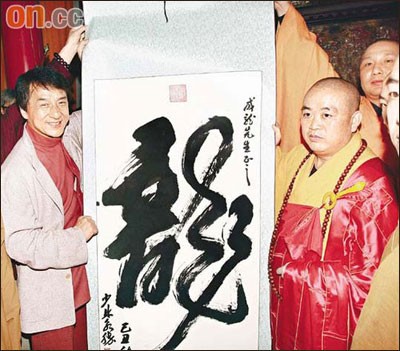 on.cc
成龙先生正之
龍
己丑
少林永信